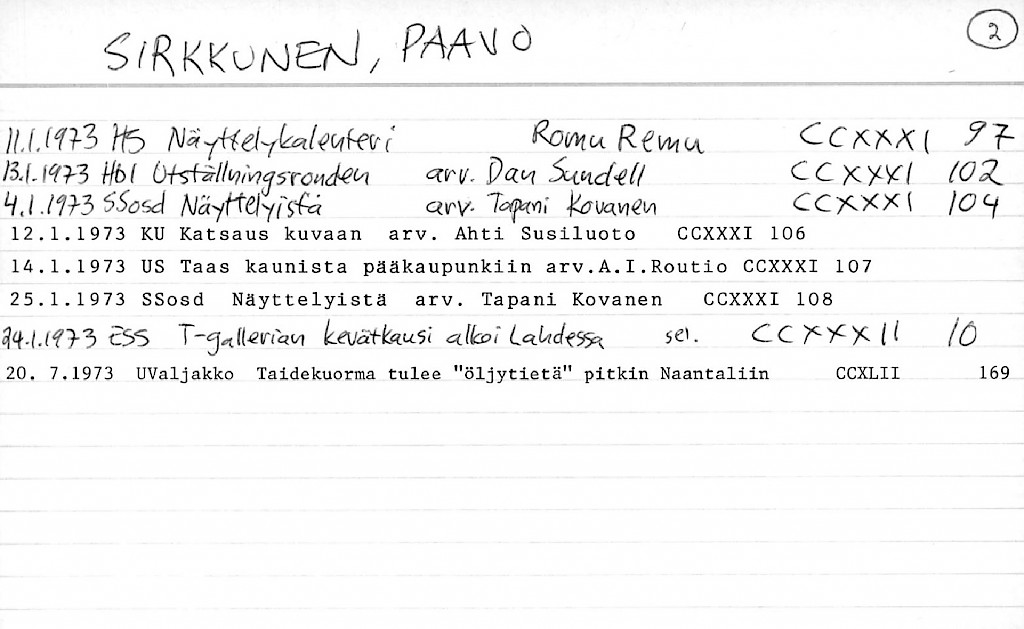 SIRKKUNEN, PAAVO 2
11.1.1973 HS Näyttelykalenteri Romu Remu CCXXXI 97
13.1.1973 Hbl Utställningsronden arv. Dan Sundell CCXXXI 102
4.1.1973 SSosd Näyttelyistä arv. Tapani Kovanen CCXXXI 104
12.1.1973 KU Katsaus kuvaan arv. Ahti Susiluoto CCXXXI 106
14.1.1973 US Taas kaunista pääkaupunkiin arv.A.I.Routio CCXXXI 107
25.1.1973 SSosd Näyttelyistä arv. Tapani Kovanen CCXXXI 108
24.1.1973 ESS T-gallerian kevätkausi alkoi Lahdessa sel. CCXXXII 10
20. 7.1973 UValjakko Taidekuorma tulee "öljytietä" pitkin Naantaliin CCXLII 169